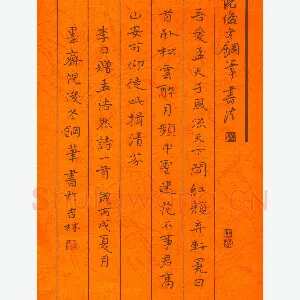 倪俊才鋼筆書法
吾愛孟夫子風流天下聞紅顏弃軒冕白
首臥松雲醉月頻中聖迷花不事君高
山安可仰徒此揖清芬
李白贈孟浩然詩一首 歲丙戌夏月
墨齋倪俊才鋼筆書於吉林